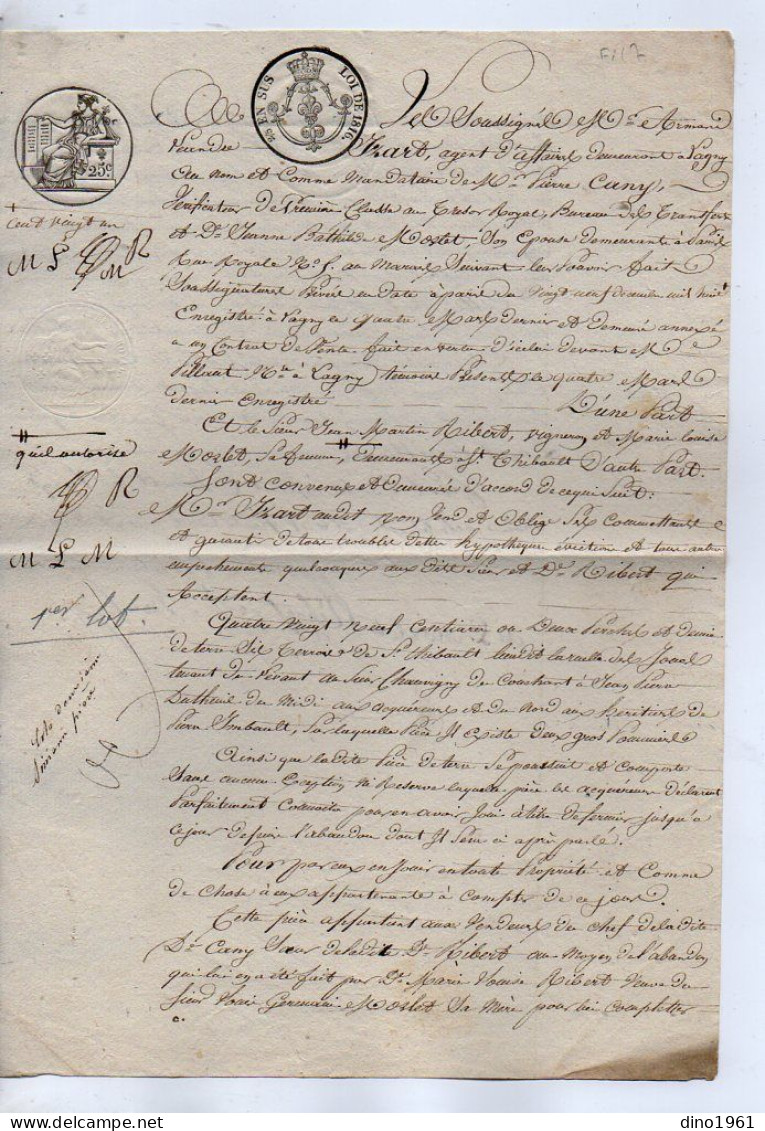 F/17
25 EN SUS LOI DE 1816.
25c
Les Soussignés Mr. Armand
Izart, agent d'affaires demeurant à Lagny
au nom et Comme Mandataire de Mr. Pierre Cuny,
Vérificateur de Première Classe au Tresor Royal, Bureau des Transferts
et De. Jeanne Bathilde Moslet, Son Epouse demeurante à Paris
Rue Royale No. au Marais Suivant leur Pouvoir fait
Sous signatures Privées en date à paris du vingt neuf
Enregistré à Lagny le quatre Mars dernier et demeuré annexé
a un Contrat de Vente fait en vertu d'icelui devant Me
Nre. à Lagny témoins Présents le quatre Mars
dernier enregistré
D'une Part
Et le Sieur Jean Martin Ribert, vigneron et Marie louise
Moslet, Sa femme, Demeurants à St. Thibault D'autre Part.
Sont convenus et demeurés d'accord de ce qui Suit:
Mr. Izart audit nom Vend et Oblige Ses Commettants
a garantir de tous troubles dettes hypothèques évictions et tous autres
empechements quelconques aux dits Sieur et De. Ribert qui
Acceptent:
Quatre Vingt Neuf Centiares ou Deux Perches et demie
de terre Sis Terroir de St. Thibault lieudit la ruelle des
tenant du Levant au Sieur Chauvigny du Couchant à Jean Pierre
Datheuil du Midi aux acquéreurs et du Nord aux héritiers de
Pierre Imbault, Sur laquelle Pièce Il existe deux gros Pommiers
Ainsi que la dite Pièce de terre Se poursuit et comporte
Sans aucune Exception Ni Reserve laquelle pièce les acquéreurs déclarent
Parfaitement Connaitre pour en avoir Joui à titre de fermier jusqu'à
ce jour depuis l'abandon dont Il Sera ci après parlé.
Pour par eux en Jouir en toute Propriété et Comme
de Chose à eux appartenante à compter de ce jour.
Cette pièce appartient aux Vendeurs du chef de la dite
De. Cuny Soeur de la dite De. Ribert au moyen de l'abandon
qui lui en a été fait par De. Marie Louise Ribert Veuve du
Sieur Louis Germain Moslet Sa Mère pour lui completter
cent vingt un
M L M R
qu'il autorise
R
M L M
1er lot.
dino1961